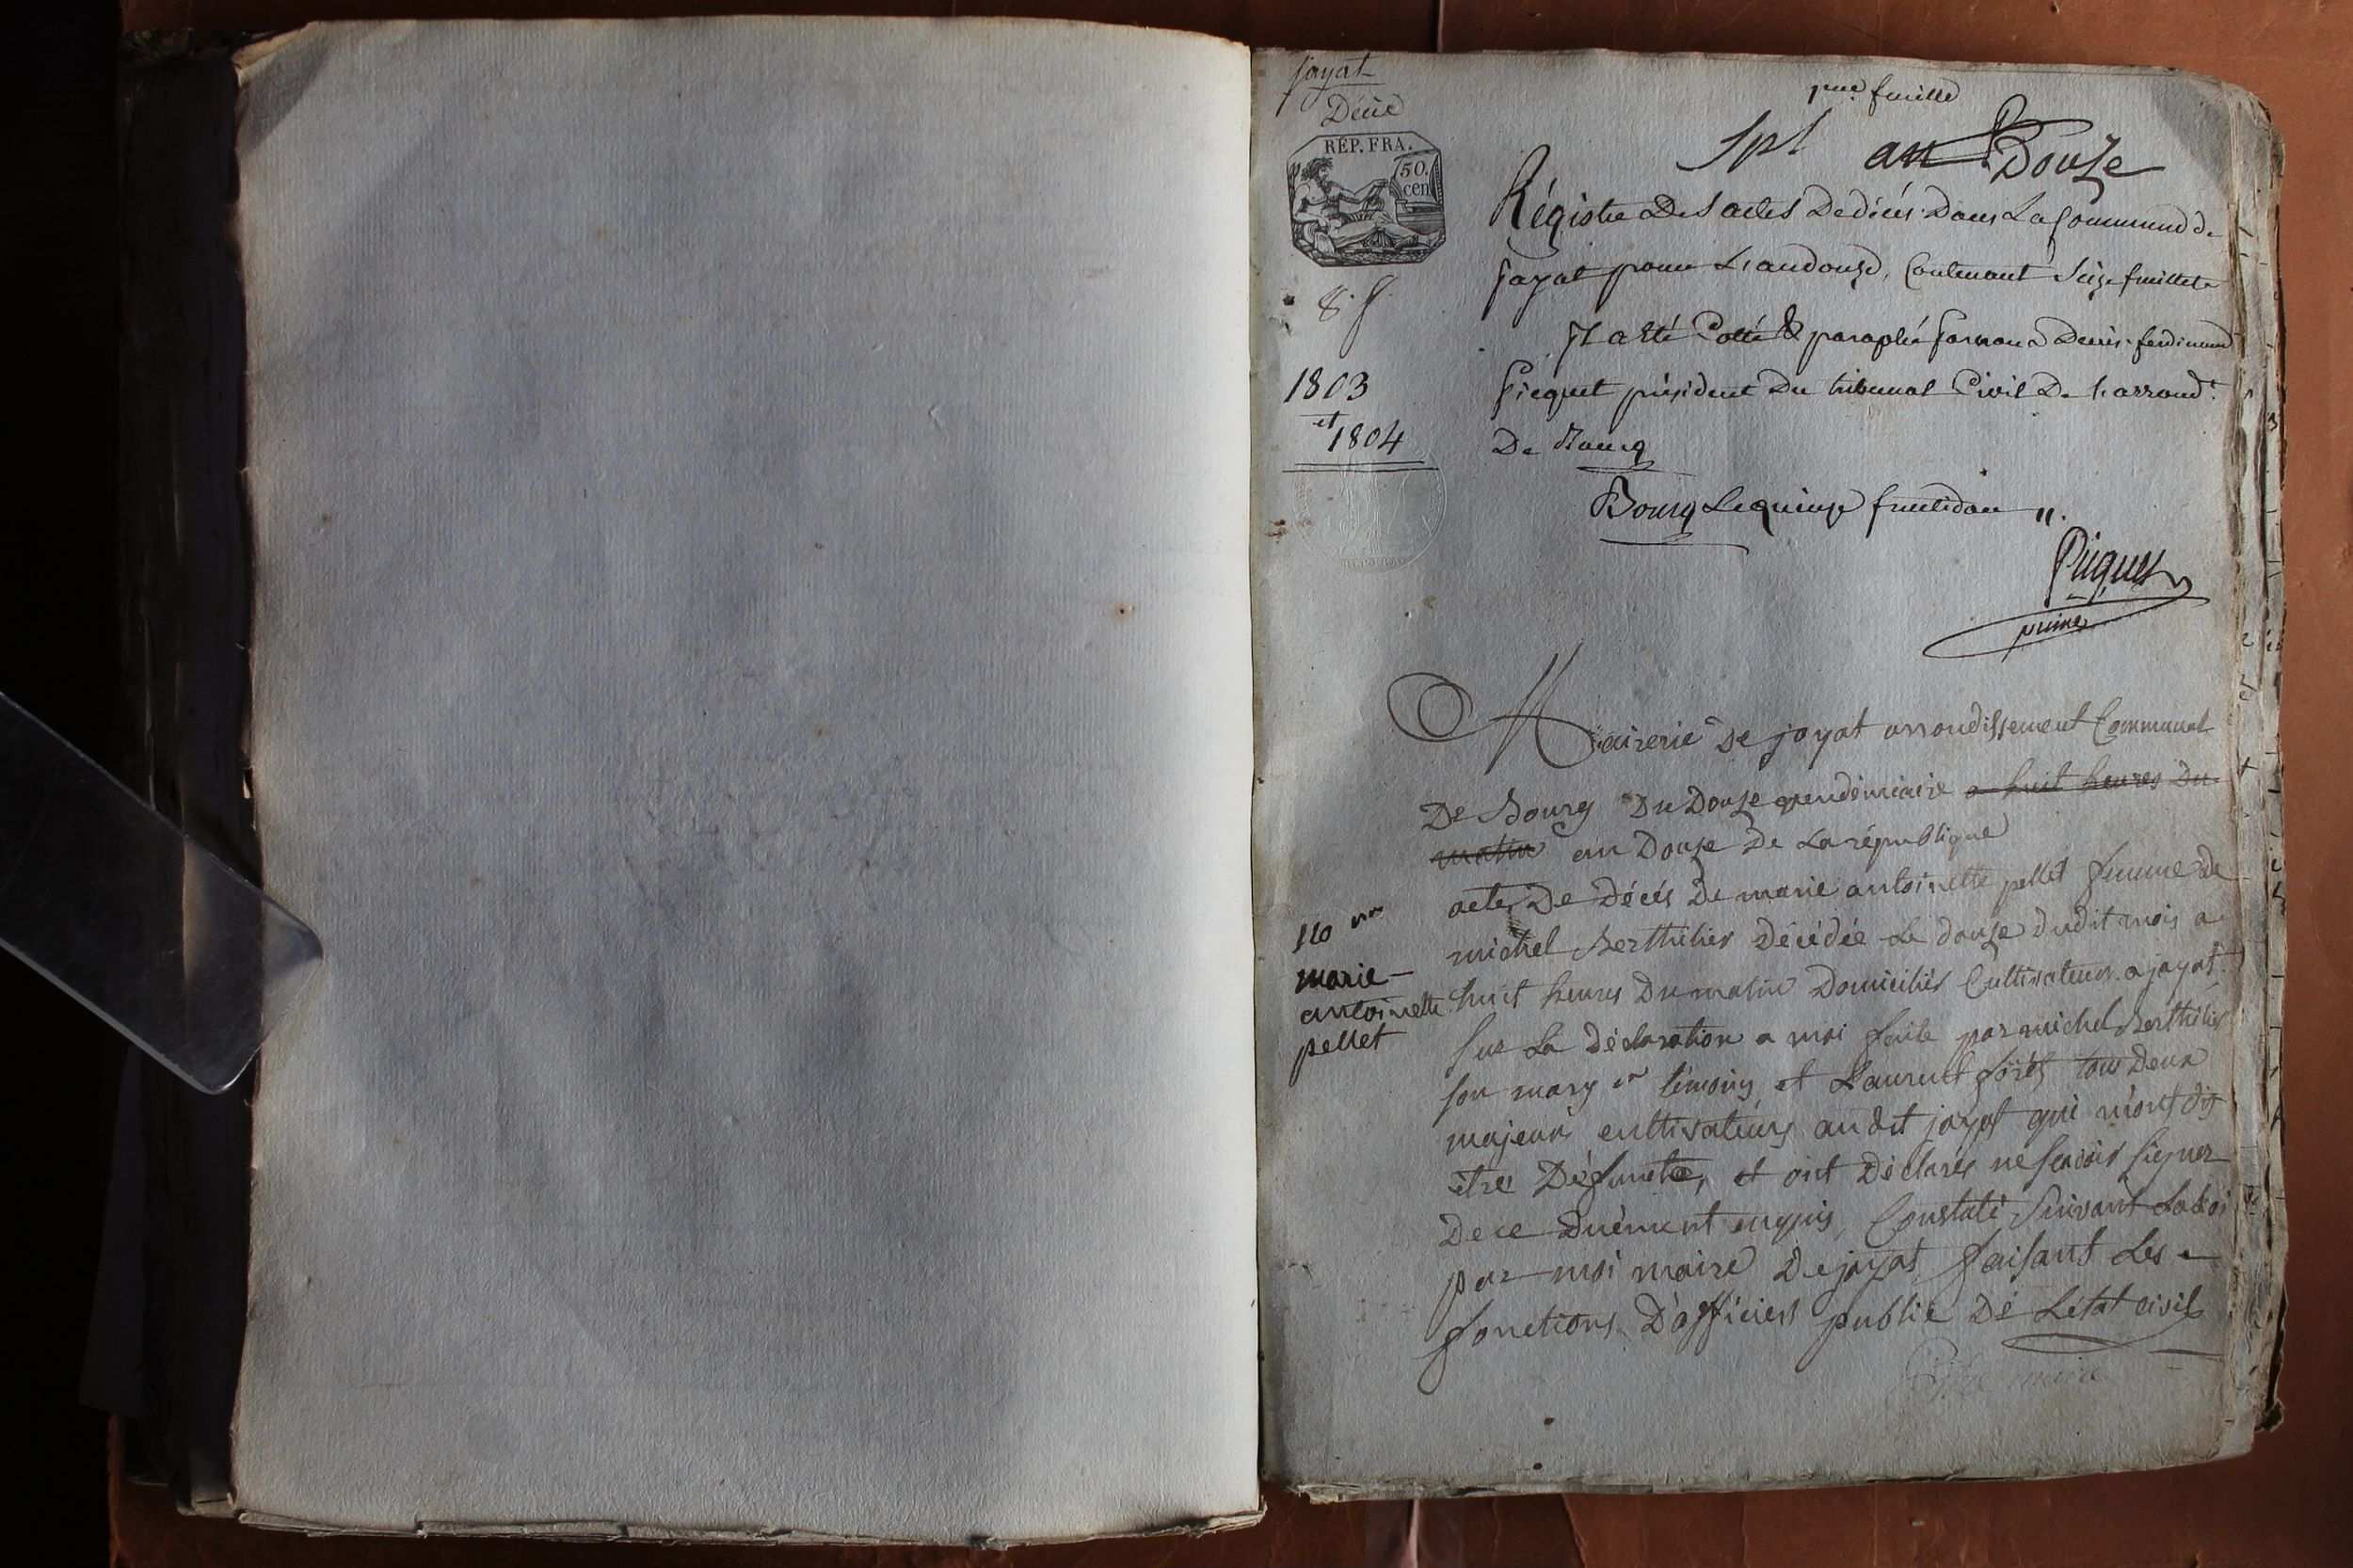 jayat
Décé
pre. feuille
RÉP. FRA.
50.
cen
an Douze
Régistre Des actes De décès Dans La Commune de
Jayat pour L'an douze, Contenant Seize feuillets
Il a été Cotté & paraphé par nous Denis ferdinand
Picquet président Du tribunal Civil De L'arrond.t
De Bourg
8 f
1803
et
1804
Bourg Le quinze fructidor
Picquet
Mairerie De jayat arrondissement Communal
De Bourg Du Douze vendémiaire a huit heures Du
matin an Douze De La république
acte De Décés De marie antoinette pellet femme de
michel Berthilier Décédée Le douze dudit mois a
huit heures Du matin Domiciliés Cultivateurs a jayat
Sur La Déclaration a moi faite par michel Berthilier
son mary er témoing et Laurent tous Deux
majeurs cultivateurs audit jayat qui m'ont dit
être Défunte, et ont Déclarés ne scavoir signer
De ce Duément enquis, Constaté Suivant La Loi
par moi maire De jayat faisant Les
fonctions D'officiers public De L'état civil
marie
antoinette
pellet
maire